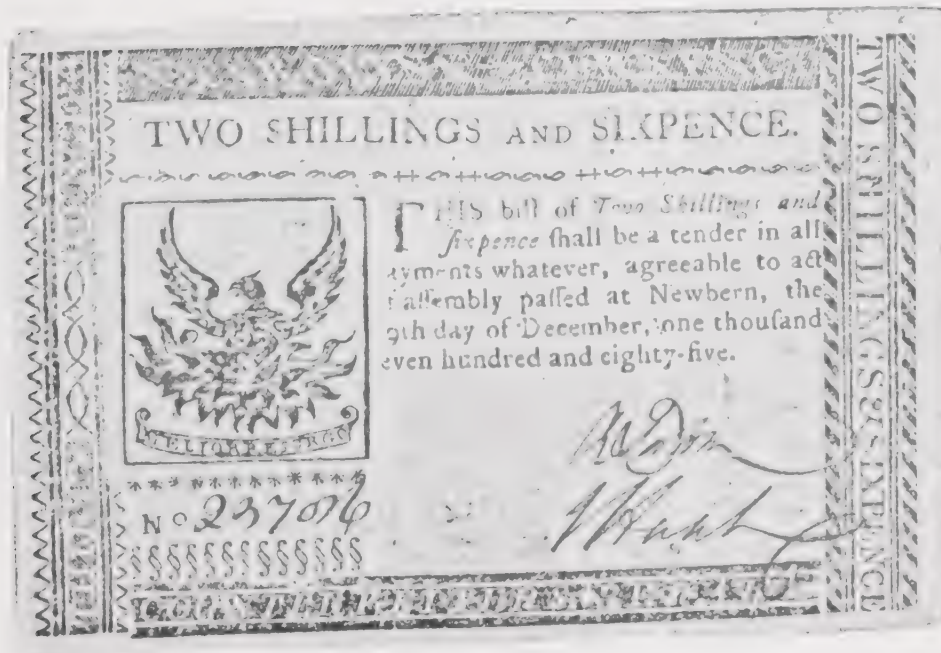 TWO SHILLINGS AND SIXPENCE.
THIS bill of Two Shillings and
ſixpence ſhall be a tender in all
ayments whatever, agreeable to act
aſſembly paſſed at Newbern, the
9th day of December, one thouſand
even hundred and eighty-five.
No 23706
TWO SHILLINGS & SIXPENCE